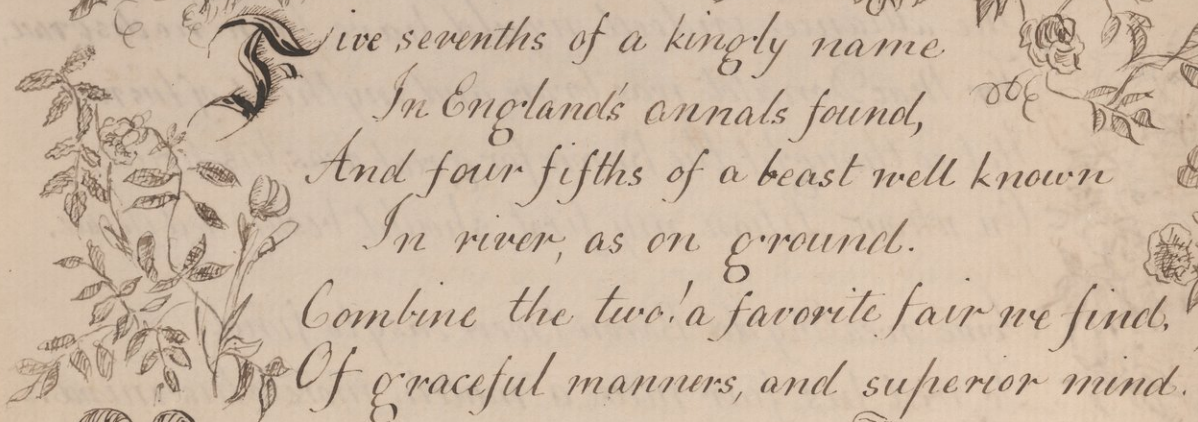 Five sevenths of a kingly name
In England's annals found,
And four fifths of a beast well known
In river, as on ground.
Combine the two! a favorite fair we find,
Of graceful manners, and superior mind.